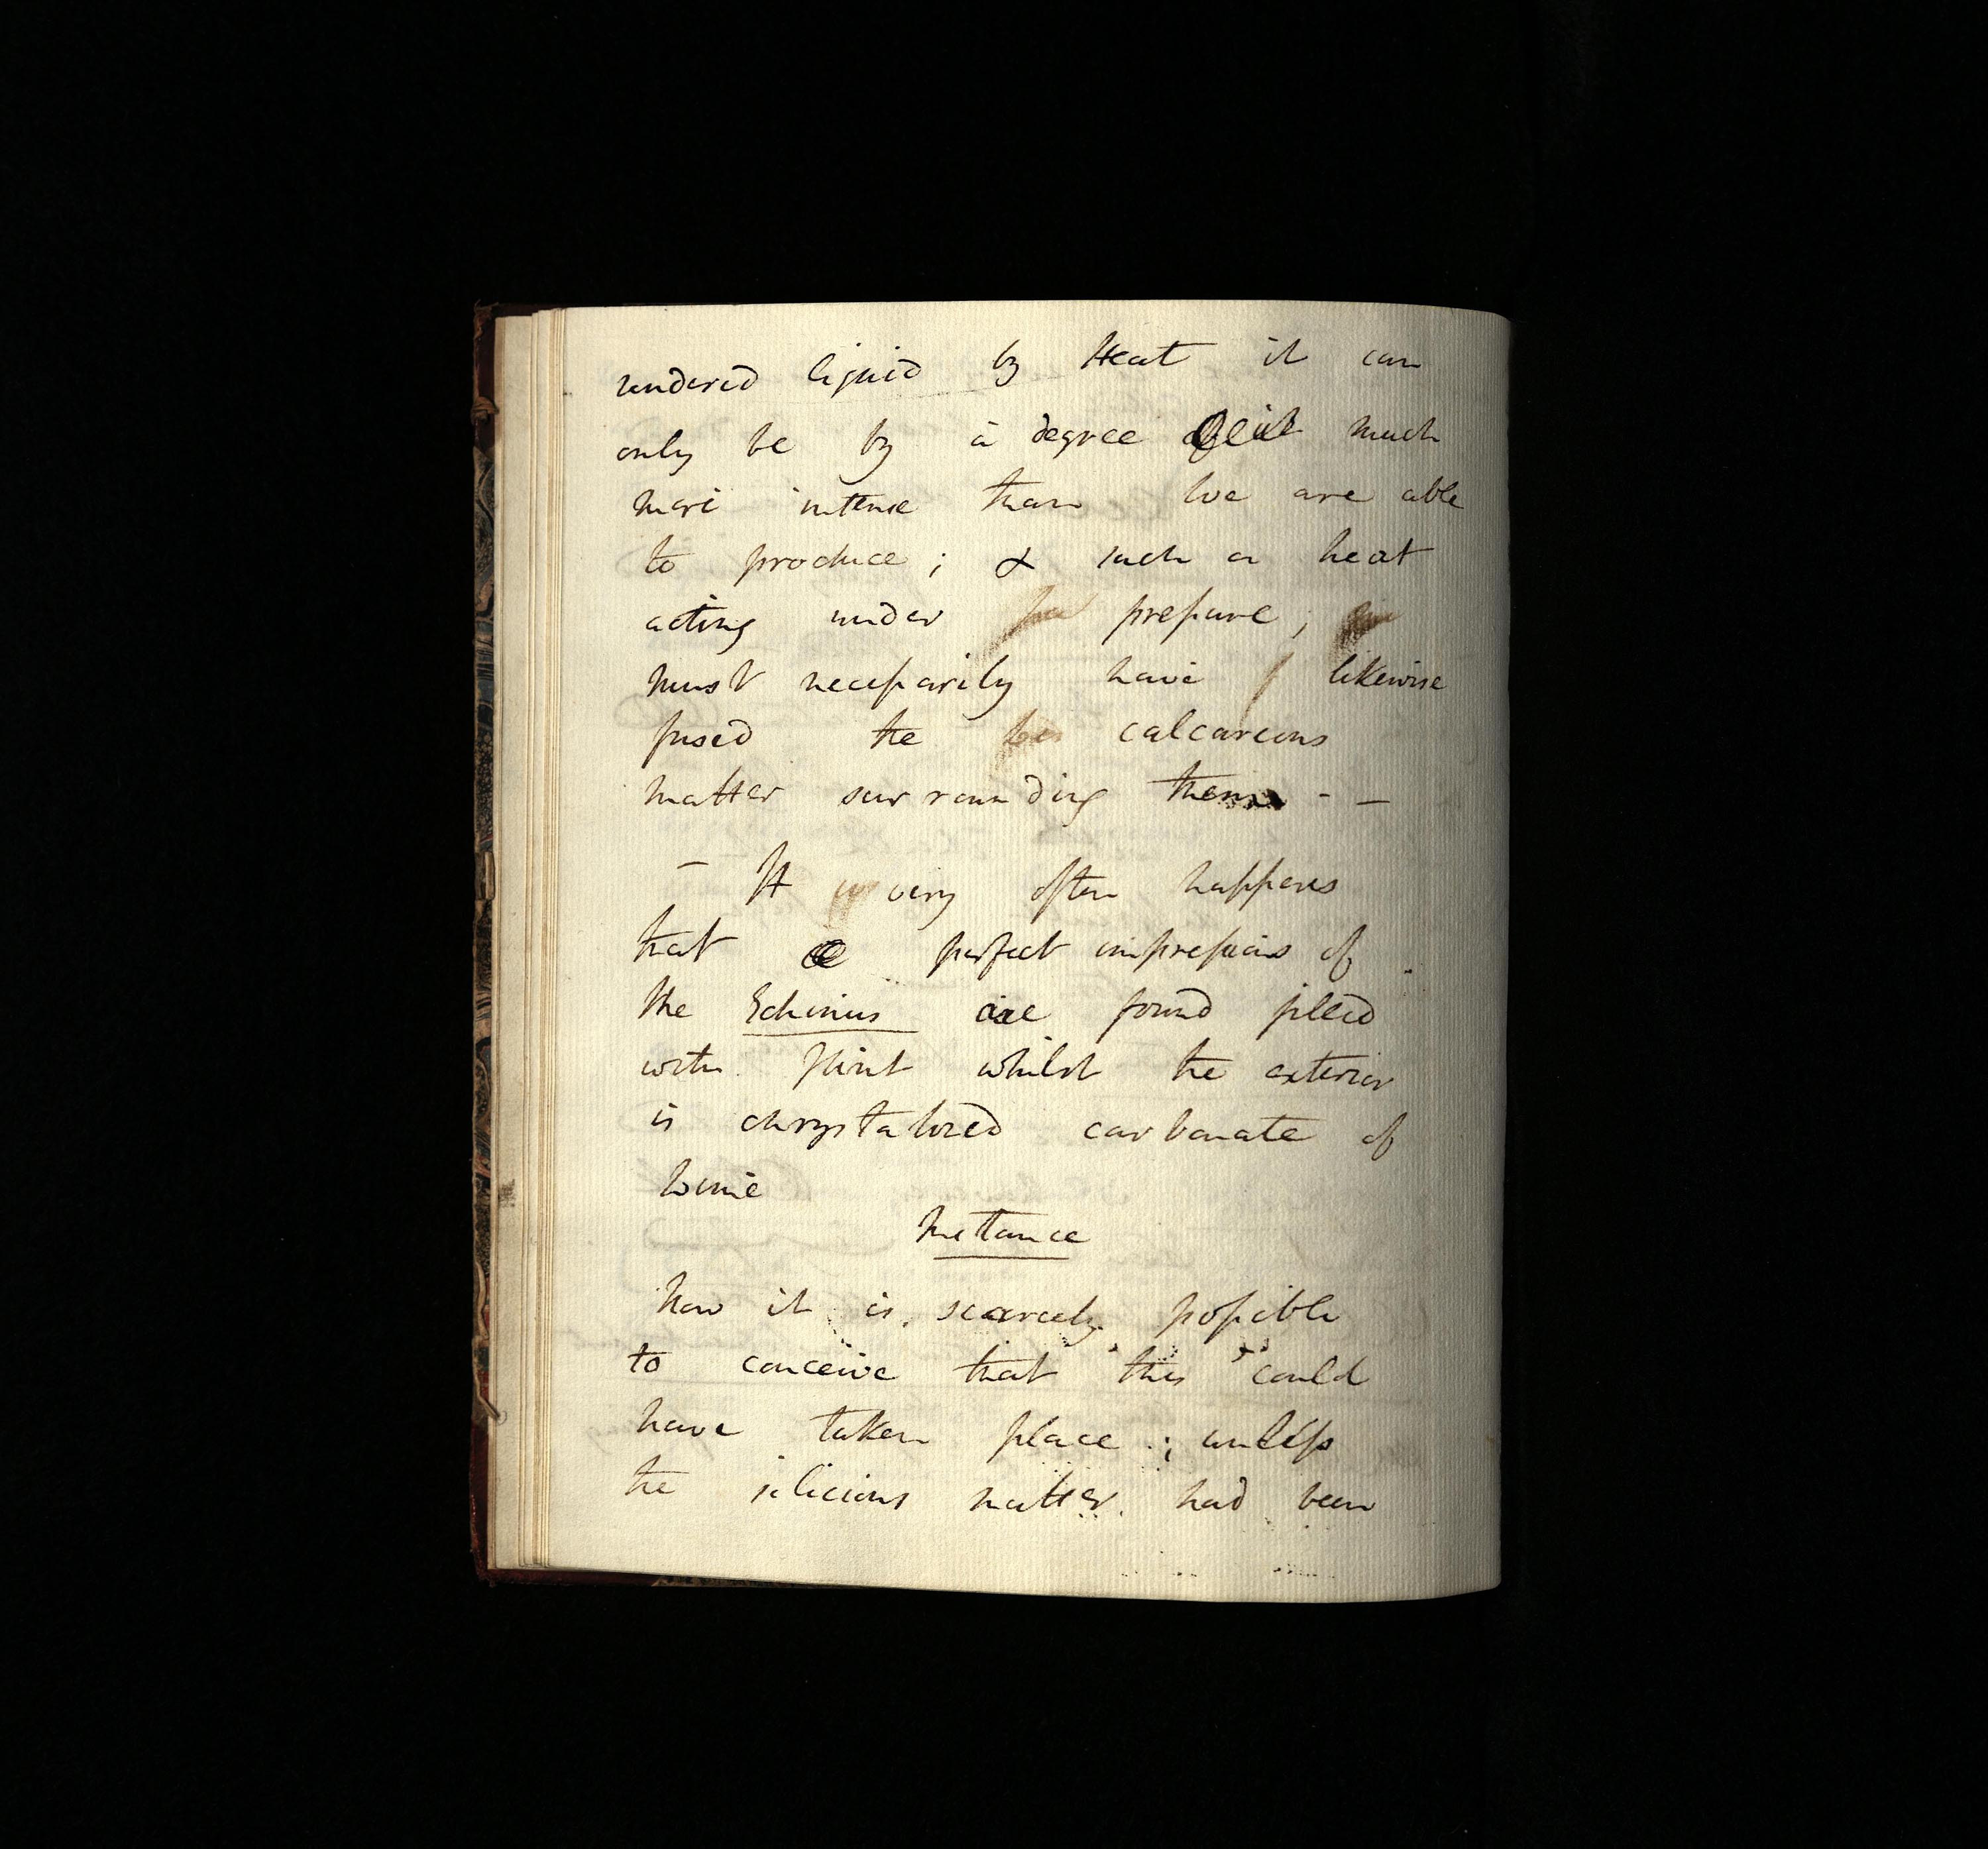 rendered liquid by Heat it can
only be by a degree much
more intense than We are able
to produce; & such a heat
acting under pressure;
must necessarily have likewise
fused the calcareous
matter surrounding them - —
— It very often happens
that perfect impressions of
the Echinus are found filled
with flint whilst the exterior
is chrystalized carbonate of
lime
Instance
Now it is scarcely possible
to conceive that this could
have taken place; unless
the silicious matter had been